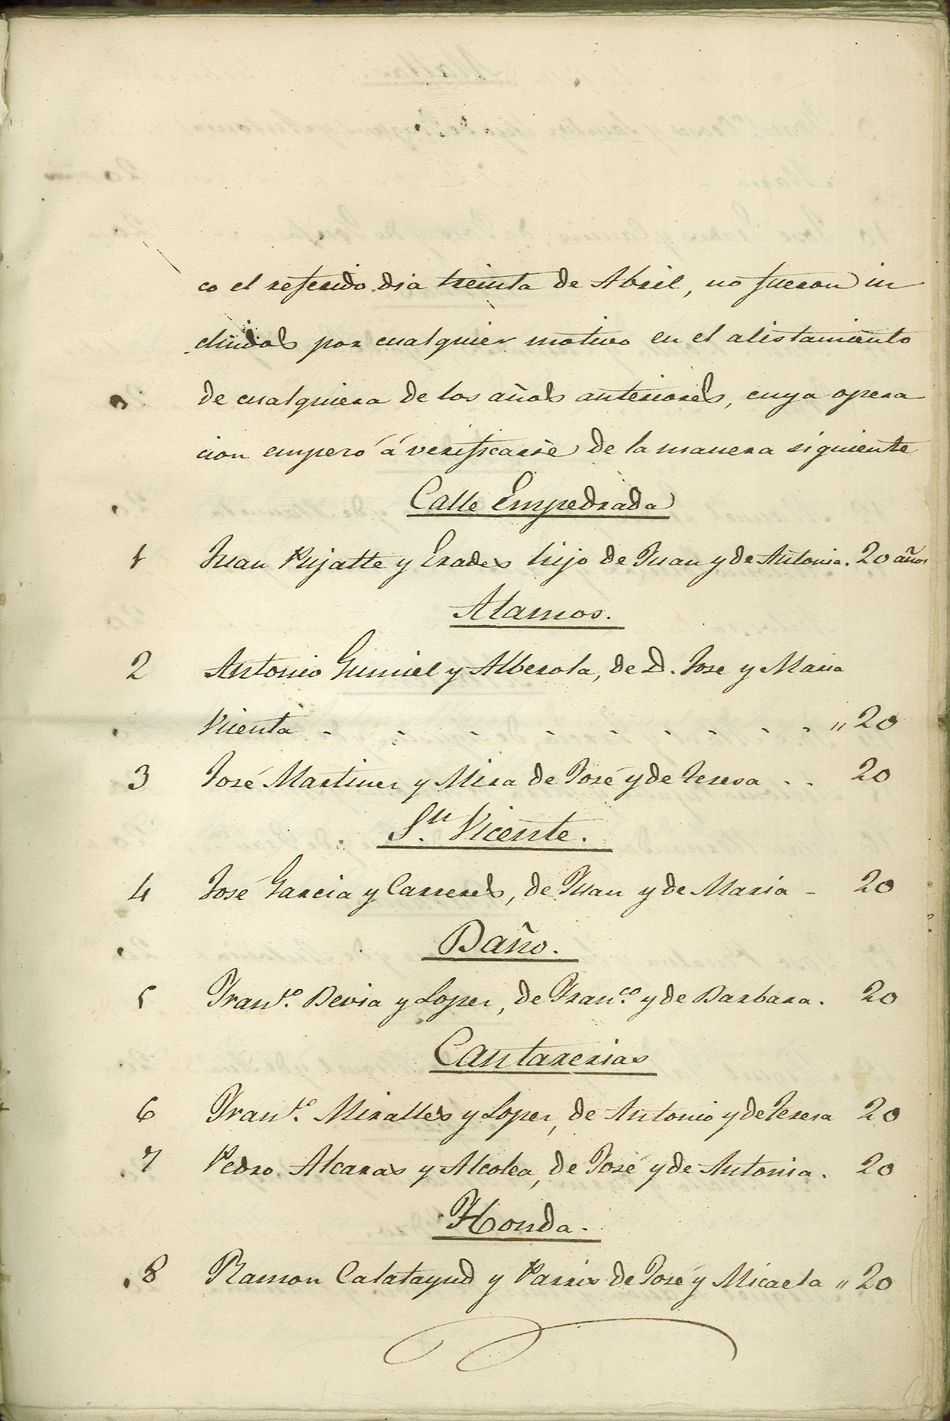 co el referido dia treinta de Abril, no fueron in
cluidos por cualquier motivo en el alistamiento
de cualquiera de los años anteriores, cuya opera
cion empezó á verificarse de la manera siguiente
Calle Empedrada
1 Juan Pujalte y Prades hijo de Juan y de Antonia. 20 años
Alamos.
2 Antonio Gumiel y Alberola, de D. Jose y Maria
Vicenta - - - - - - - - " 20
3 José Martinez y Mira de José y de Teresa - - 20
Sn. Vicente.
4 José Garcia y Carreres, de Juan y de Maria - 20
Baño.
5 Franco. Devia y Lopez, de Franco. y de Barbara. 20
Cantarerias
6 Franco. Miralles y Lopez, de Antonio y de Teresa 20
7 Pedro Alcaras y Alcolea, de José y de Antonia. 20
Honda.
8 Ramon Calatayud y Parris de José y Micaela " 20